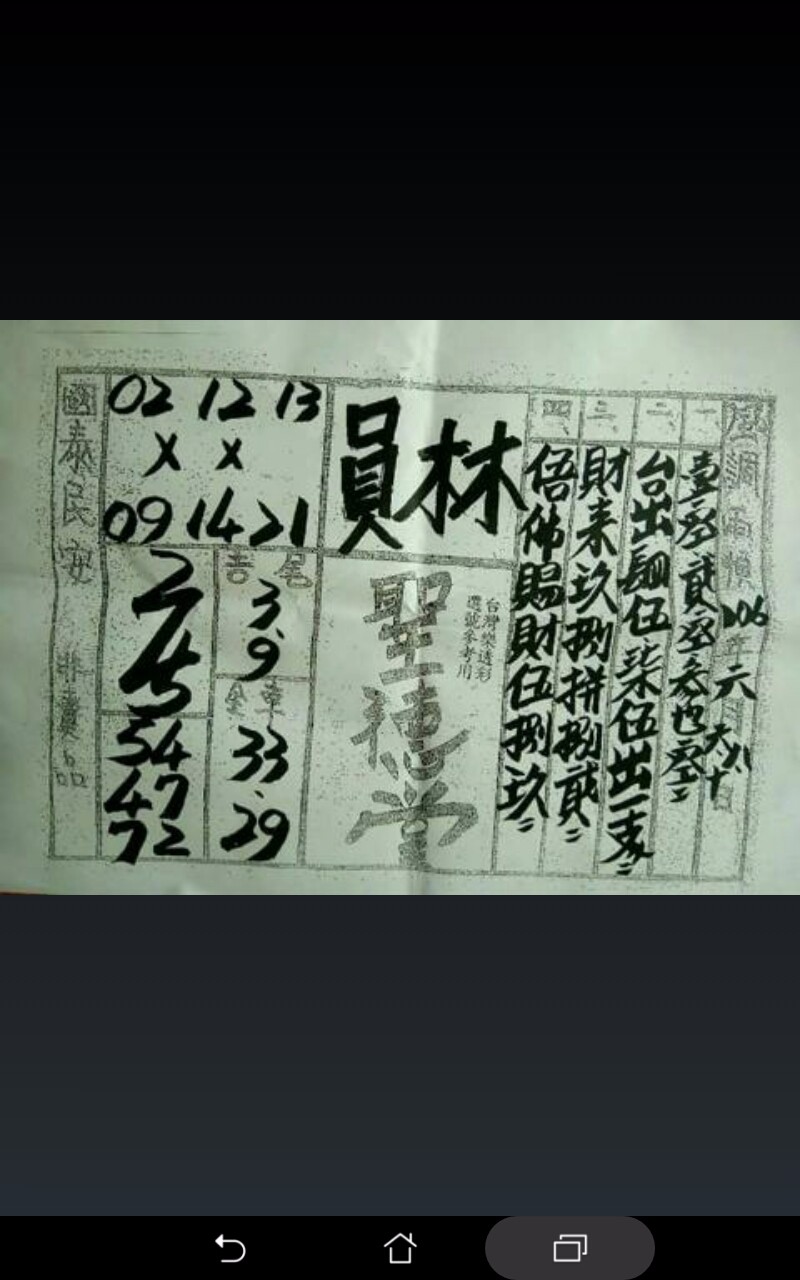 風調雨順 106年六月八十日
一、壹空貳空叁也空=
二、台出肆伍柒伍出一支=
三、財來玖捌拼捌貳=
四、伍佛賜財伍捌玖=
員林
台灣樂透彩
選號參考用
聖德堂
02 12 13
X X
09 14 21
吉尾
3.9
全車
33.29
2
45
54
47
72
國泰民安 非賣品